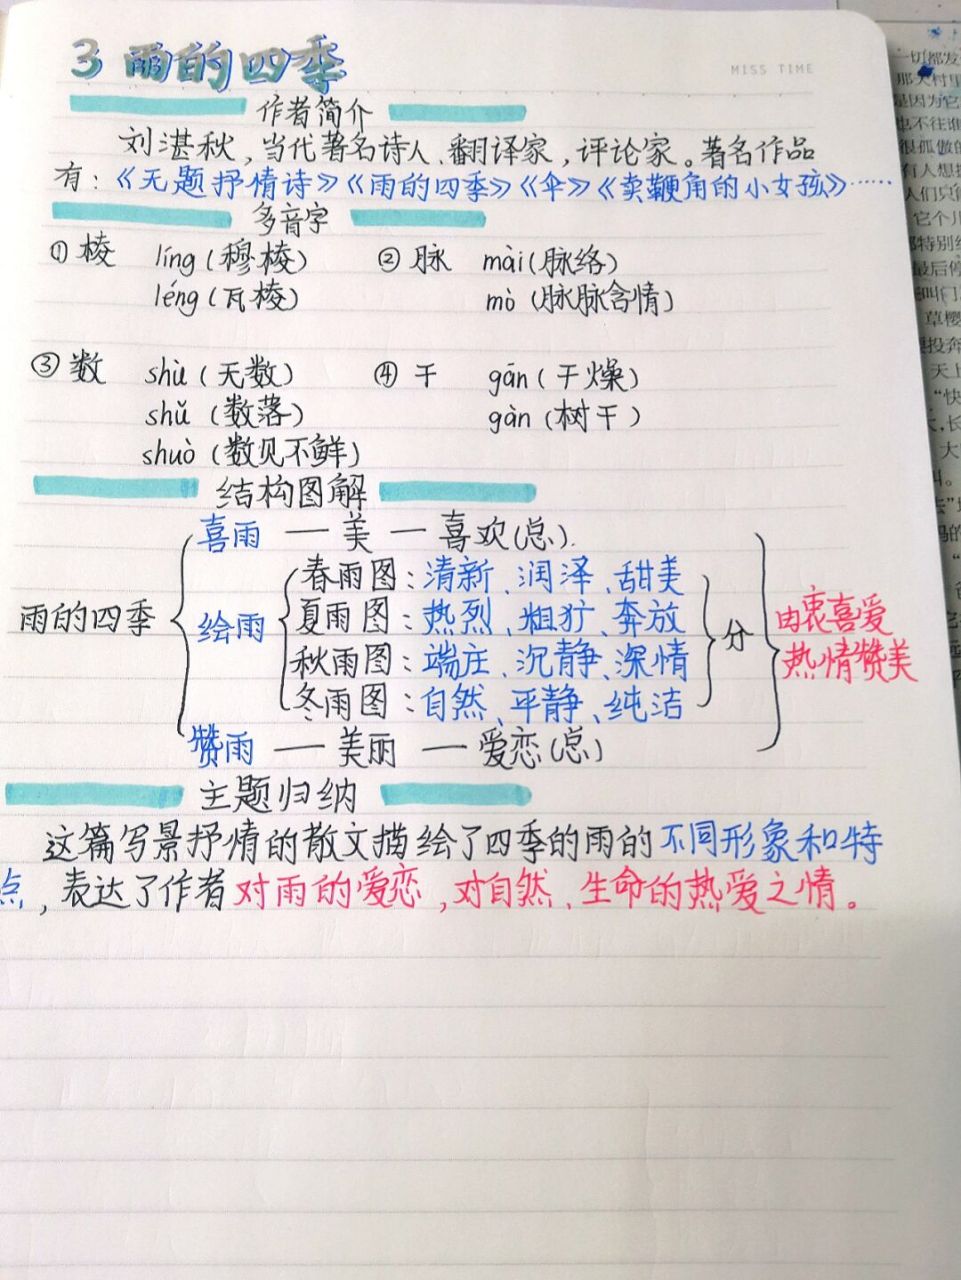 3 雨的四季
MISS TIME
作者简介
刘湛秋,当代著名诗人、翻译家,评论家。著名作品
有:《无题抒情诗》《雨的四季》《伞》《卖鞭角的小女孩》……
多音字
① 棱 líng(穆棱) ② 脉 mài(脉络)
léng(瓦棱) mò(脉脉含情)
③ 数 shù(无数) ④ 干 gān(干燥)
shǔ(数落) gàn(树干)
shuò(数见不鲜)
结构图解
喜雨 — 美 — 喜欢(总).
春雨图:清新、润泽、甜美
雨的四季 绘雨 夏雨图:热烈、粗犷、奔放 分 由衷喜爱
秋雨图:端庄、沉静、深情 热情赞美
冬雨图:自然、平静、纯洁
赞雨 — 美丽 — 爱恋(总)
主题归纳
这篇写景抒情的散文描绘了四季的雨的不同形象和特
点,表达了作者对雨的爱恋,对自然、生命的热爱之情。
一切都发
那天村里
是因为它
也不往谁
很孤傲的
有人想
人们只
它个儿
都特别
最后停
叫门
草樱
投奔
天上
“快
大